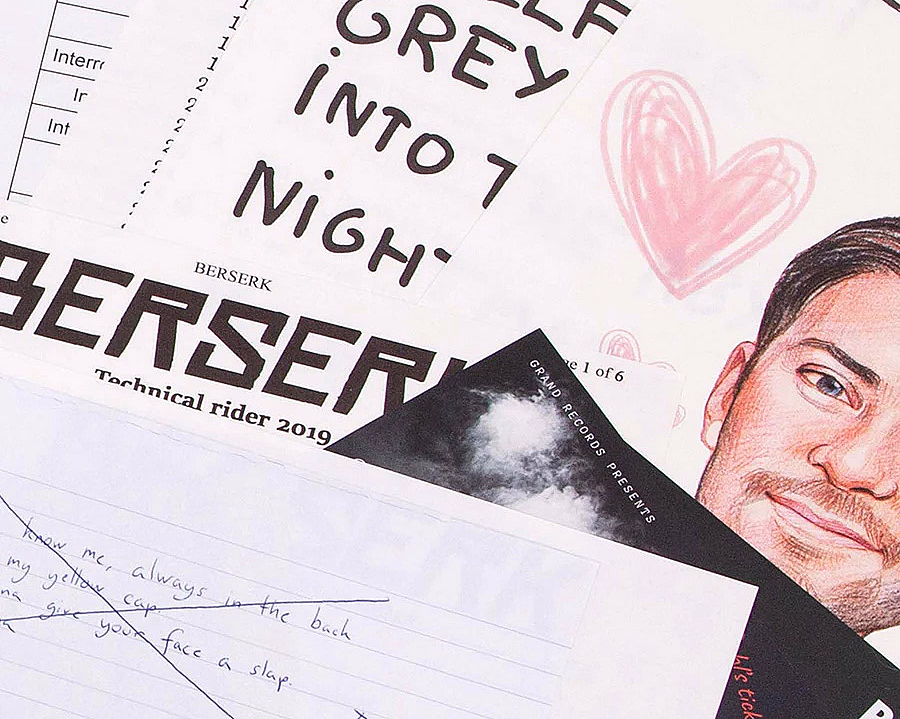 GREY
INTO
NIGH
1
1
1
2
2
2
2
Int
BERSERK
BERSER
Technical rider 2019
1 of 6
GRAND RECORDS PRESENTS
know me, always in the back
my yellow cap.
give your face a slap.